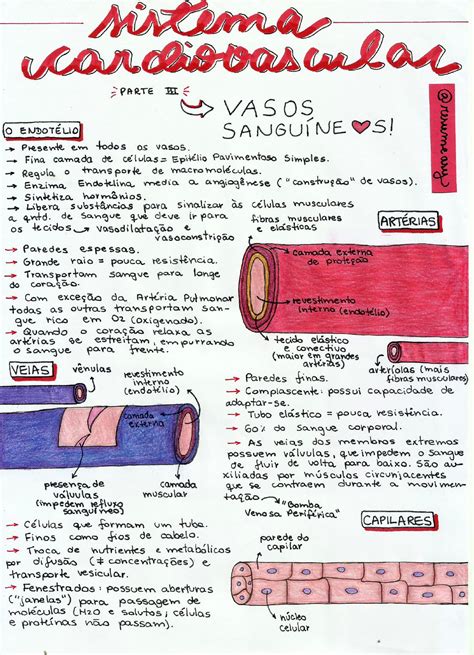 sistema
cardiovascular
PARTE III
VASOS
SANGUÍNEOS!
@resumeany
O ENDOTÉLIO
→ Presente em todos os vasos.
→ Fina camada de células = Epitélio Pavimentoso Simples.
→ Regula o transporte de macromoléculas.
→ Enzima Endotelina media a angiogênese ("construção" de vasos).
→ Sintetiza hormônios.
→ Libera substâncias para sinalizar às células musculares
a qntd. de sangue que deve ir para
os tecidos → vasodilatação e
vasoconstrição
fibras musculares
e elásticas
ARTÉRIAS
→ Paredes espessas.
→ Grande raio = pouca resistência.
→ Transportam sangue para longe
do coração.
→ Com exceção da Artéria Pulmonar
todas as outras transportam san-
gue rico em O2 (oxigenado).
→ Quando o coração relaxa as
artérias se estreitam, empurrando
o sangue para frente.
camada externa
de proteção
revestimento
interno (endotélio)
tecido elástico
e conectivo
(maior em grandes
artérias)
arteríolas (mais
fibras musculares)
VEIAS
vênulas
revestimento
interno
(endotélio)
camada
externa
presença de
válvulas
(impedem refluxo
sanguíneo)
camada
muscular
→ Paredes finas.
→ Complascente: possui capacidade de
adaptar-se.
→ Tubo elástico = pouca resistência.
→ 60% do sangue corporal.
→ As veias dos membros extremos
possuem válvulas, que impedem o sangue
de fluir de volta para baixo. São au-
xiliadas por músculos circunjacentes
que se contraem durante a movimen-
tação
"Bomba
Venosa Periférica"
CAPILARES
→ Células que formam um tubo.
→ Finos como fios de cabelo.
→ Troca de nutrientes e metabólicos
por difusão (≠ concentrações) e
transporte vesicular.
→ Fenestrados: possuem aberturas
("janelas") para passagem de
moléculas (H2O e solutos; células
e proteínas não passam).
parede do
capilar
núcleo
celular